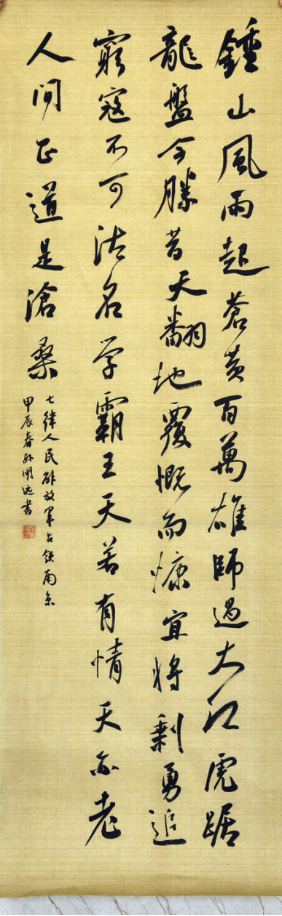 鍾山風雨起蒼黄百萬雄師過大江虎踞
龍盤今勝昔天翻地覆慨而慷宜將剩勇追
窮寇不可沽名学霸王天若有情天亦老
人间正道是滄桑
七律人民解放軍占領南京
甲辰春孙開远書